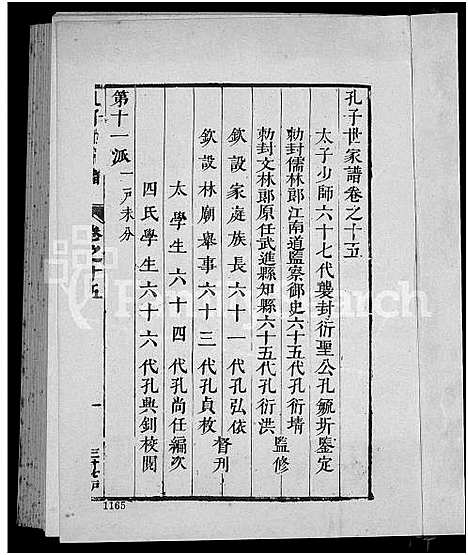 孔子世家譜卷之十五
太子少師六十七代襲封衍聖公孔毓圻鑒定
勅封儒林郎江南道監察御史六十五代孔衍㙷
勅封文林郎原任武進縣知縣六十五代孔衍洪
監修
欽設家庭族長六十一代孔弘依
欽設林廟舉事六十三代孔貞枚
督刊
太學生六十四代孔尚任編次
四氏學生六十六代孔興釗校閱
第十一派一戶未分
卷之十五
一
三十七戶
1165